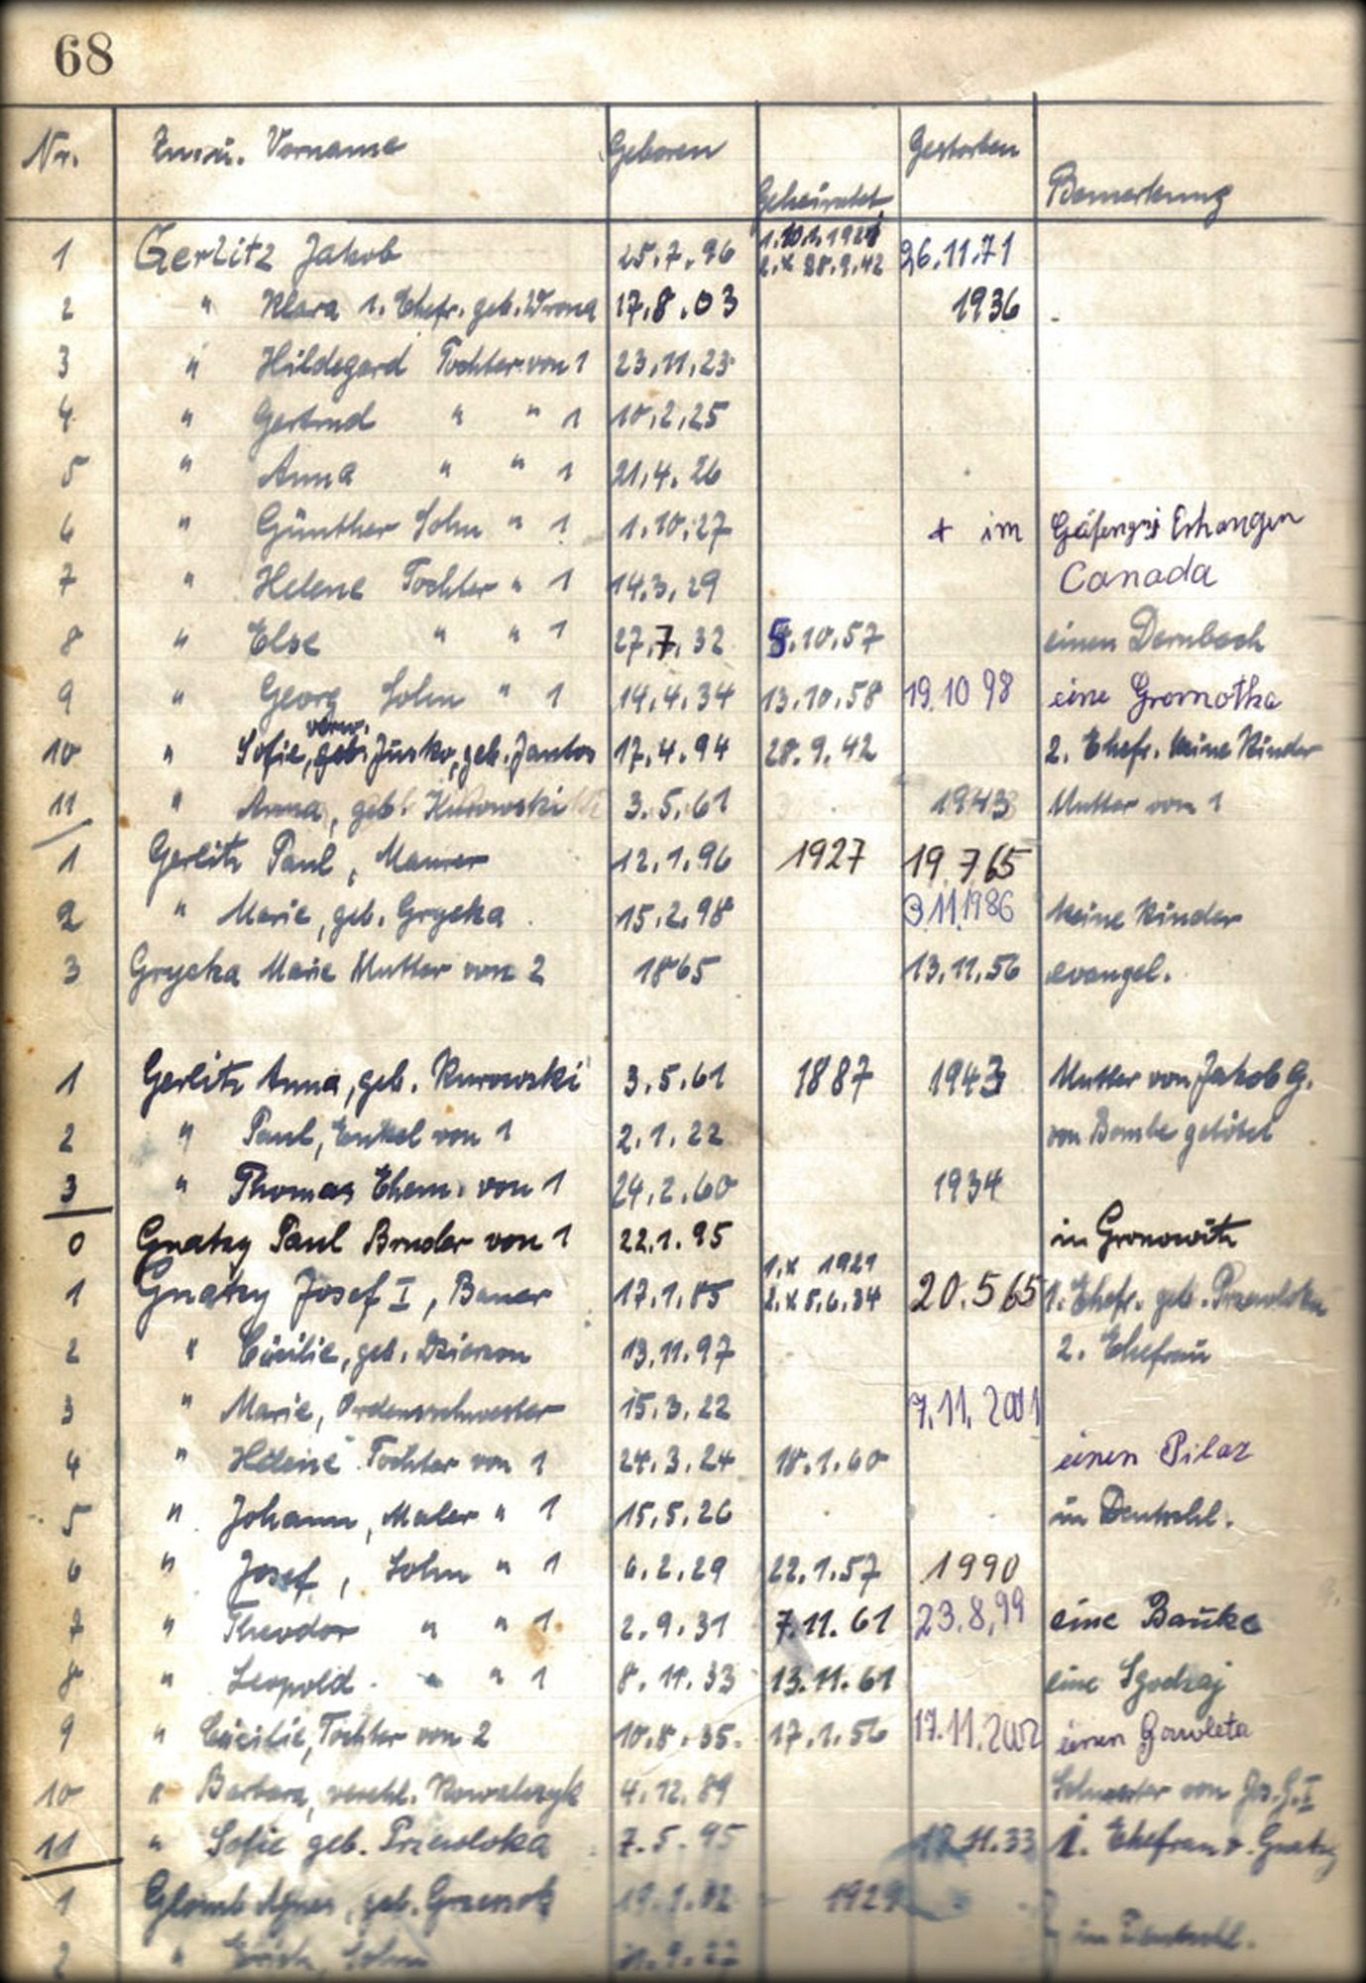 68
Nr. Zu.u. Vorname Geboren Geheiratet Gestorben Bemerkung
1 Gerlitz Jakob 25.7.96 1. 1921 2.x 28.9.42 26.11.71
2 " Klara 1. Ehefr. geb. Wrona 17.8.03 1936
3 " Hildegard Tochter von 1 23.11.23
4 " Gertrud " " 1 10.2.25
5 " Anna " " 1 21.4.26
6 " Günther Sohn " 1 1.10.27 + im Gäfengnis Erhangen
7 " Helene Tochter " 1 14.3.29 Canada
8 " Else " " 1 27.7.32 5.10.57 einen Dernbach
9 " Georg Sohn " 1 14.4.34 13.10.58 19.10 98 eine Gromotka
10 " Sofie, verw. Jusko, geb. Jantos 17.4.94 28.9.42 2. Ehefr. keine Kinder
11 " Anna, geb. Kurowski 3.5.61 1943 Mutter von 1
1 Gerlitz Paul, Maurer 12.1.96 1927 19.7.65
2 " Marie, geb. Gryska 15.2.98 3.11.1986 keine Kinder
3 Gryska Marie Mutter von 2 1865 13.11.56 evangel.
1 Gerlitz Anna, geb. Kurowski 3.5.61 1887 1943 Mutter von Jakob G.
2 " Paul, Enkel von 1 2.1.22 von Bombe getötet
3 " Thomas Ehem. von 1 24.2.60 1934
0 Gnatzy Paul Bruder von 1 22.1.95 in Gronowitz
1 Gnatzy Josef I, Bauer 17.1.85 1.x 1921 2.x 5.6.34 20.5 65 1. Ehefr. geb. Przewloka
2 " Cäcilie, geb. Dzierzon 13.11.97 2. Ehefrau
3 " Marie, Ordensschwester 15.3.22 7.11.2001
4 " Helene Tochter von 1 24.3.24 18.1.60 einen Pilaz
5 " Johann, Maler " 1 15.5.26 in Deutschl.
6 " Josef, Sohn " 1 6.2.29 22.1.57 1990
7 " Theodor " " 1 2.9.31 7.11.61 23.8.99 eine Bauke
8 " Leopold " " 1 8.11.33 13.11.61 eine Sgodzaj
9 " Cäcilie, Tochter von 2 10.8.35. 17.1.56 17.11.2002 einen Gawleta
10 " Barbara, verehl. Kowalczyk 4.12.89 Schwester von Jos. G. I
11 " Sofie geb. Przewloka 7.5.95 17.11.33 1. Ehefrau v. Gnatzy
1 Glomb Agnes, geb. 1929
2 " Erich, Sohn in Deutschl.